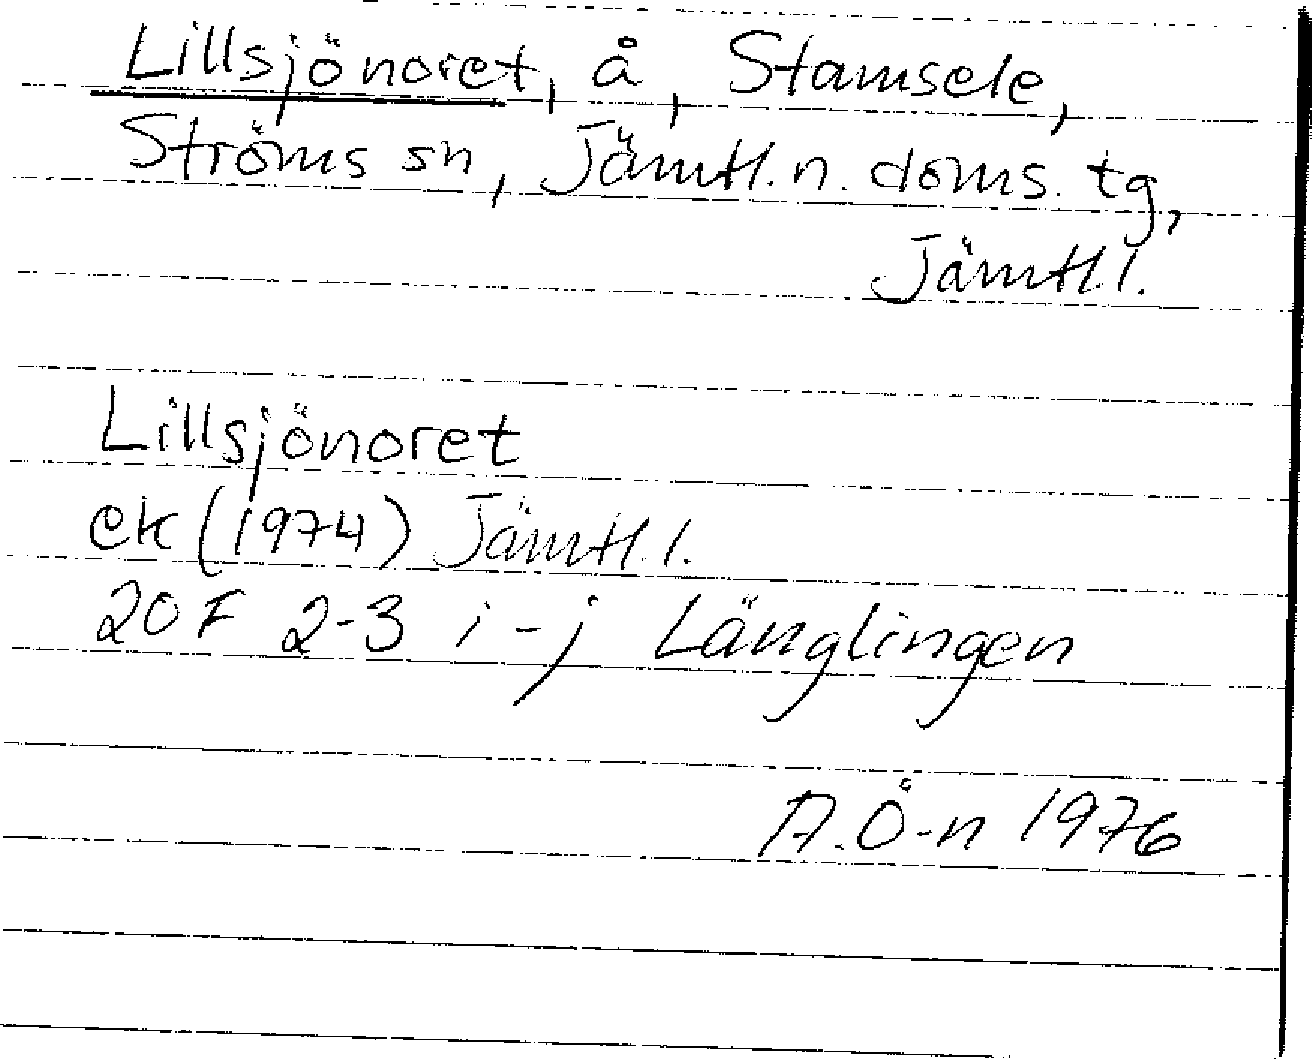 Lillsjönoret, å, Stamsele,
Ströms sn, Jämtl. n. doms. tg,
Jämtl. l.
Lillsjönoret
ek (1974) Jämtl. l.
20 F 2-3 i-j Länglingen
A. Ö-n 1976